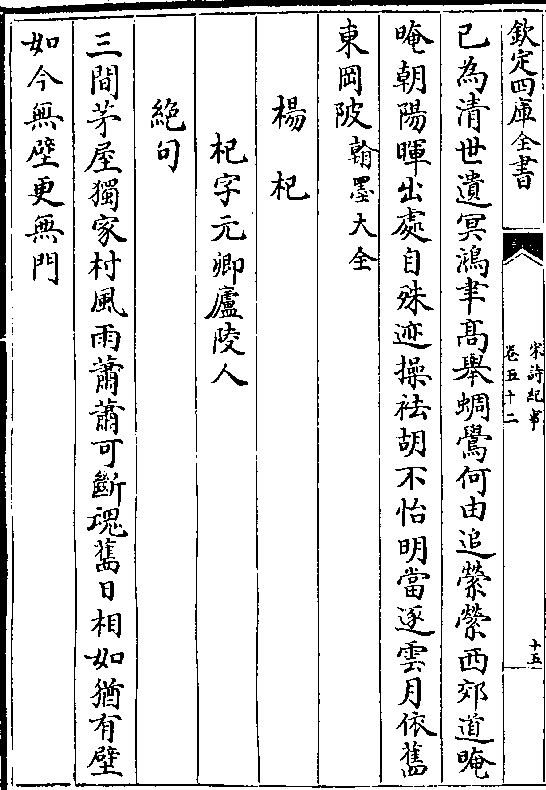 欽定四庫全書
宋詩紀事
卷五十二
十五
已為清世遺冥鴻聿髙舉蜩鷽何由追縈縈西郊道晻
晻朝陽暉出處自殊迹操袪胡不怡明當逐雲月依舊
東岡陂翰墨大全
楊杞
杞字元卿廬陵人
絶句
三間茅屋獨家村風雨蕭蕭可斷䰟舊日相如猶有壁
如今無壁更無門